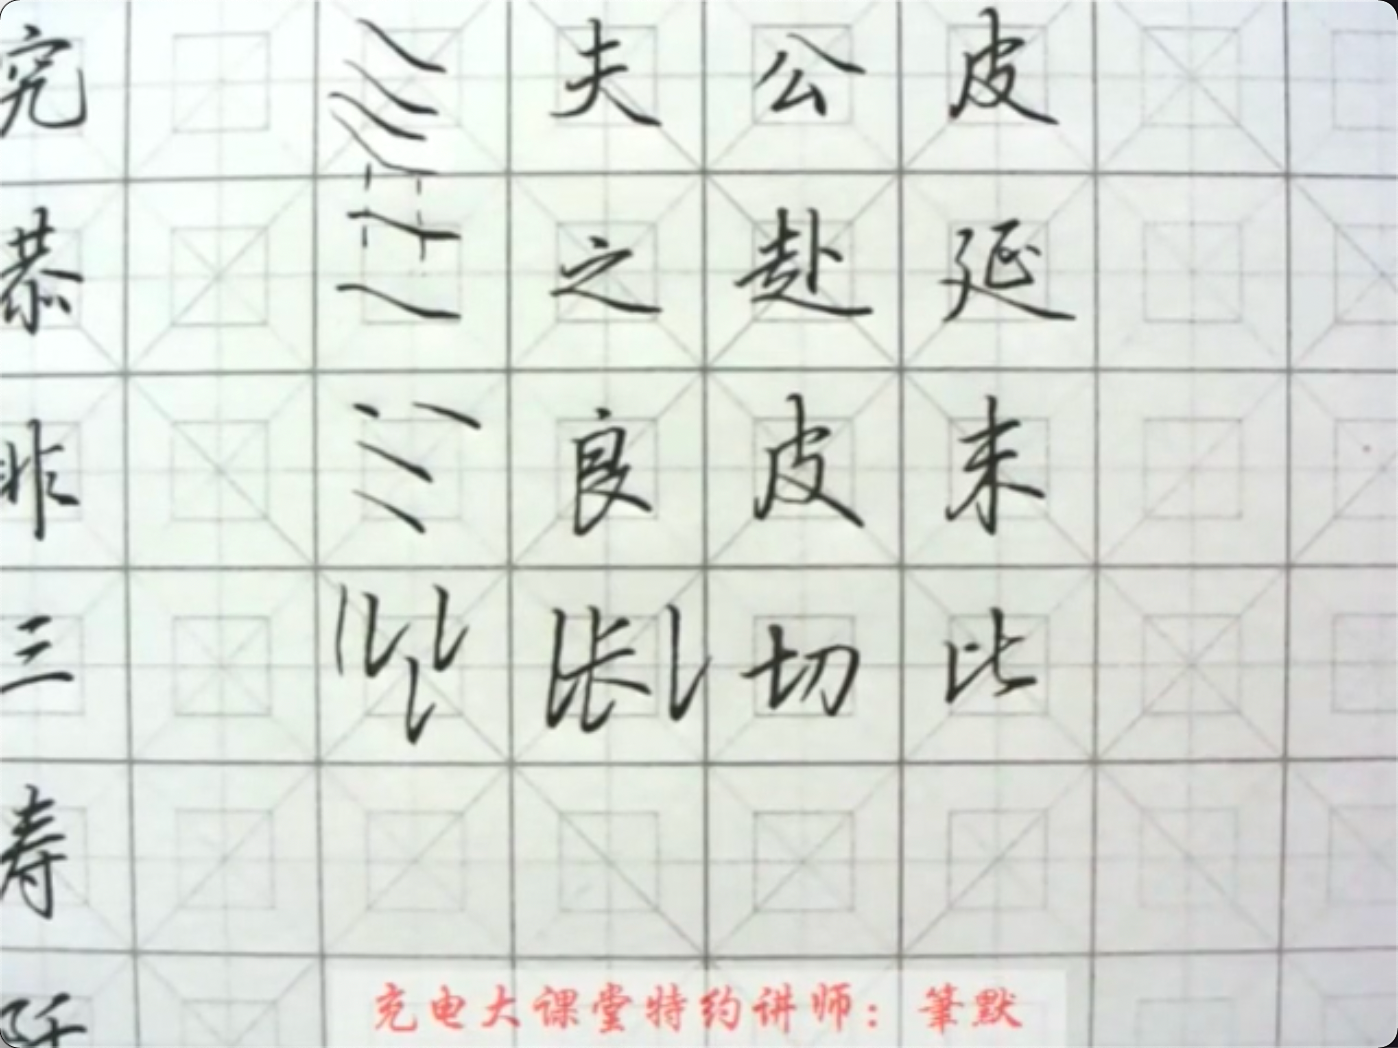 究 夫 公 皮
恭 之 赴 延
非 良 皮 末
三 长 切 比
寿
充电大课堂特约讲师：筆默